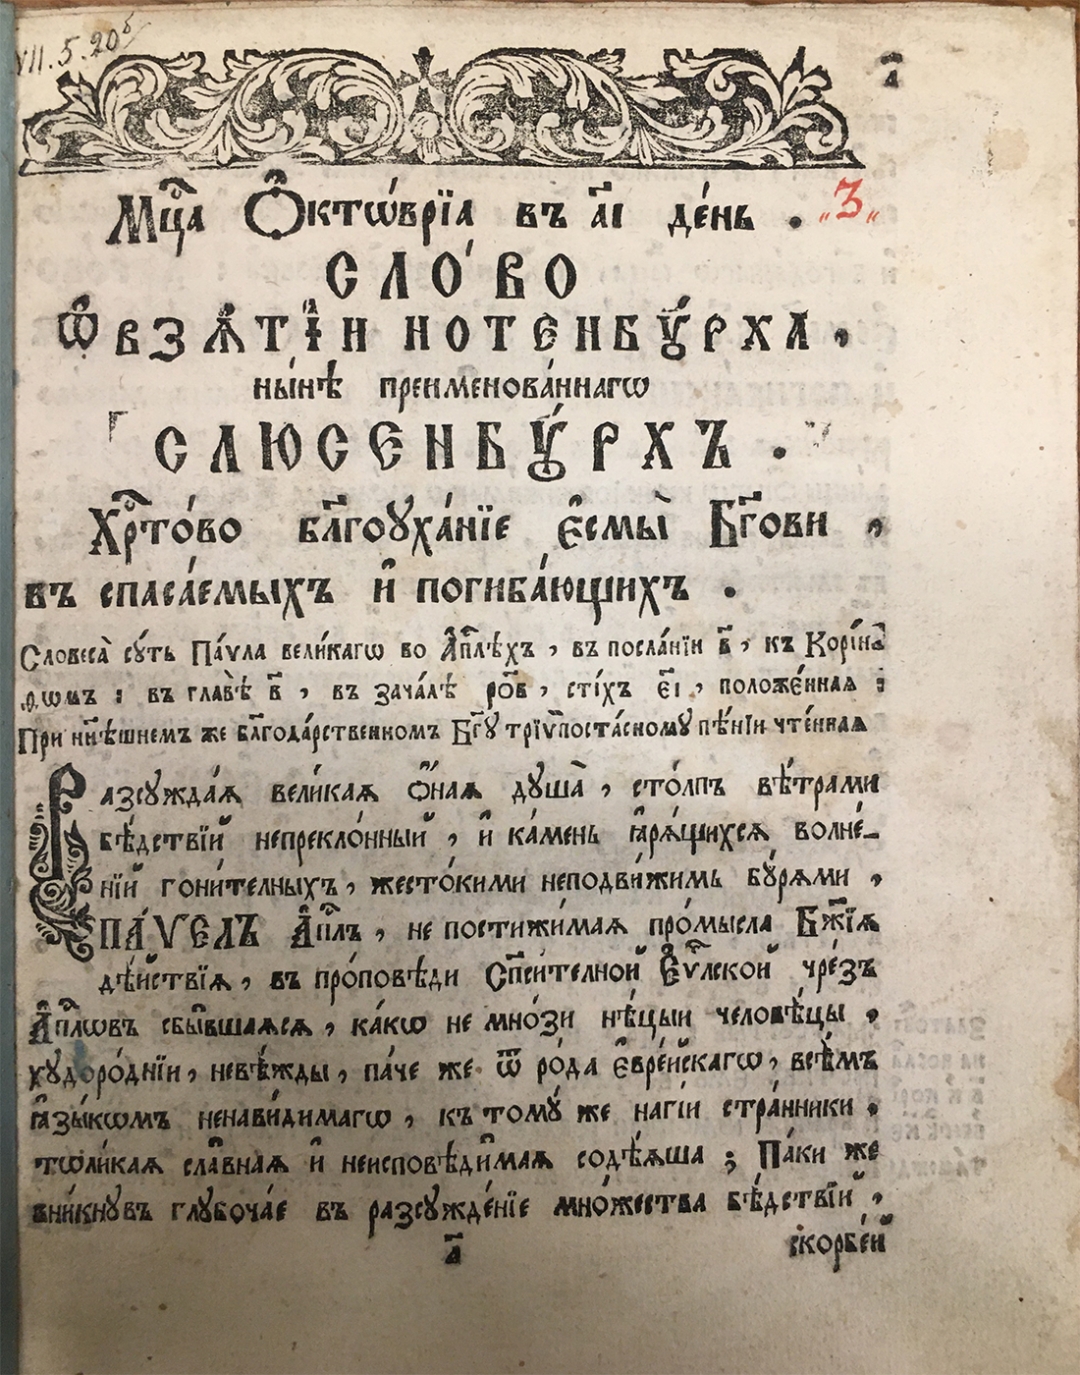 VII.5.20б
а҃
Мц҃а Ѻ҆ктѡ́врїа въ а҃і де́нь .
„3„
СЛО́ВО
Ѡ҆ ВЗѦ́ТЇИ НОТЕНБꙊ́РХА ,
ны́нѣ преименова́ннагѡ
СЛЮСЕНБꙊ́РХЪ .
Хрⷭ҇то́во бл҃гоуха́нїе є҆смы̀ Бг҃ови ,
въ спаса́емыхъ и҆ погиба́ющихъ .
Словеса̀ сꙋ́ть Па́ѵла вели́кагѡ во А҆пⷭ҇лѣхъ , въ посла́нїи в҃ , къ Корі́нѳ
ѳѡмъ : въ главѣ̀ в҃ , въ зача́лѣ ро҃в , сті́хъ є҃і , положе́нная :
При нн҃ѣшнемъ же бл҃года́рственномъ Бг҃ꙋ трїѵ̈поста́сномꙋ пѣ́нїи чте́нная
Разсꙋжда́ѧ вели́каѧ ѻ҆́наѧ дꙋша̀ , сто́лпъ вѣ́трами
бѣ́дствїй непрекло́нный , и҆ ка́мень ꙗ҆рѧ́щихсѧ волне́-
нїй гони́телныхъ , жесто́кими неподви́жимь бꙋ́рѧми ,
ПА́ѴЕЛЪ А҆пⷭ҇лъ , не постижи́маѧ про́мысла Бж҃їѧ
дѣ́йствїѧ , въ про́повѣди Сп҃си́телной Є҆ѵⷢ҇лской чре́зъ
А҆пⷭ҇лѡвъ сбы́вшаѧсѧ , ка́кѡ не мно́зи нѣ́цыи человѣ́цы ,
хꙋдоро́днїи , невѣ́жды , па́че же ѿ ро́да є҆вре́йскагѡ , всѣ̑мъ
ꙗ҆зы́кѡмъ ненави́димагѡ , къ томꙋ́ же нагі́и стра́нники .
толи́каѧ сла̑внаѧ и҆ неисповѣ́димаѧ содѣ́ѧша ; Па́ки же
вни́кнꙋвъ глꙋбоча́е въ разсꙋжде́нїе мно́жества бѣ́дствїй ,
а҃
скорбе́й